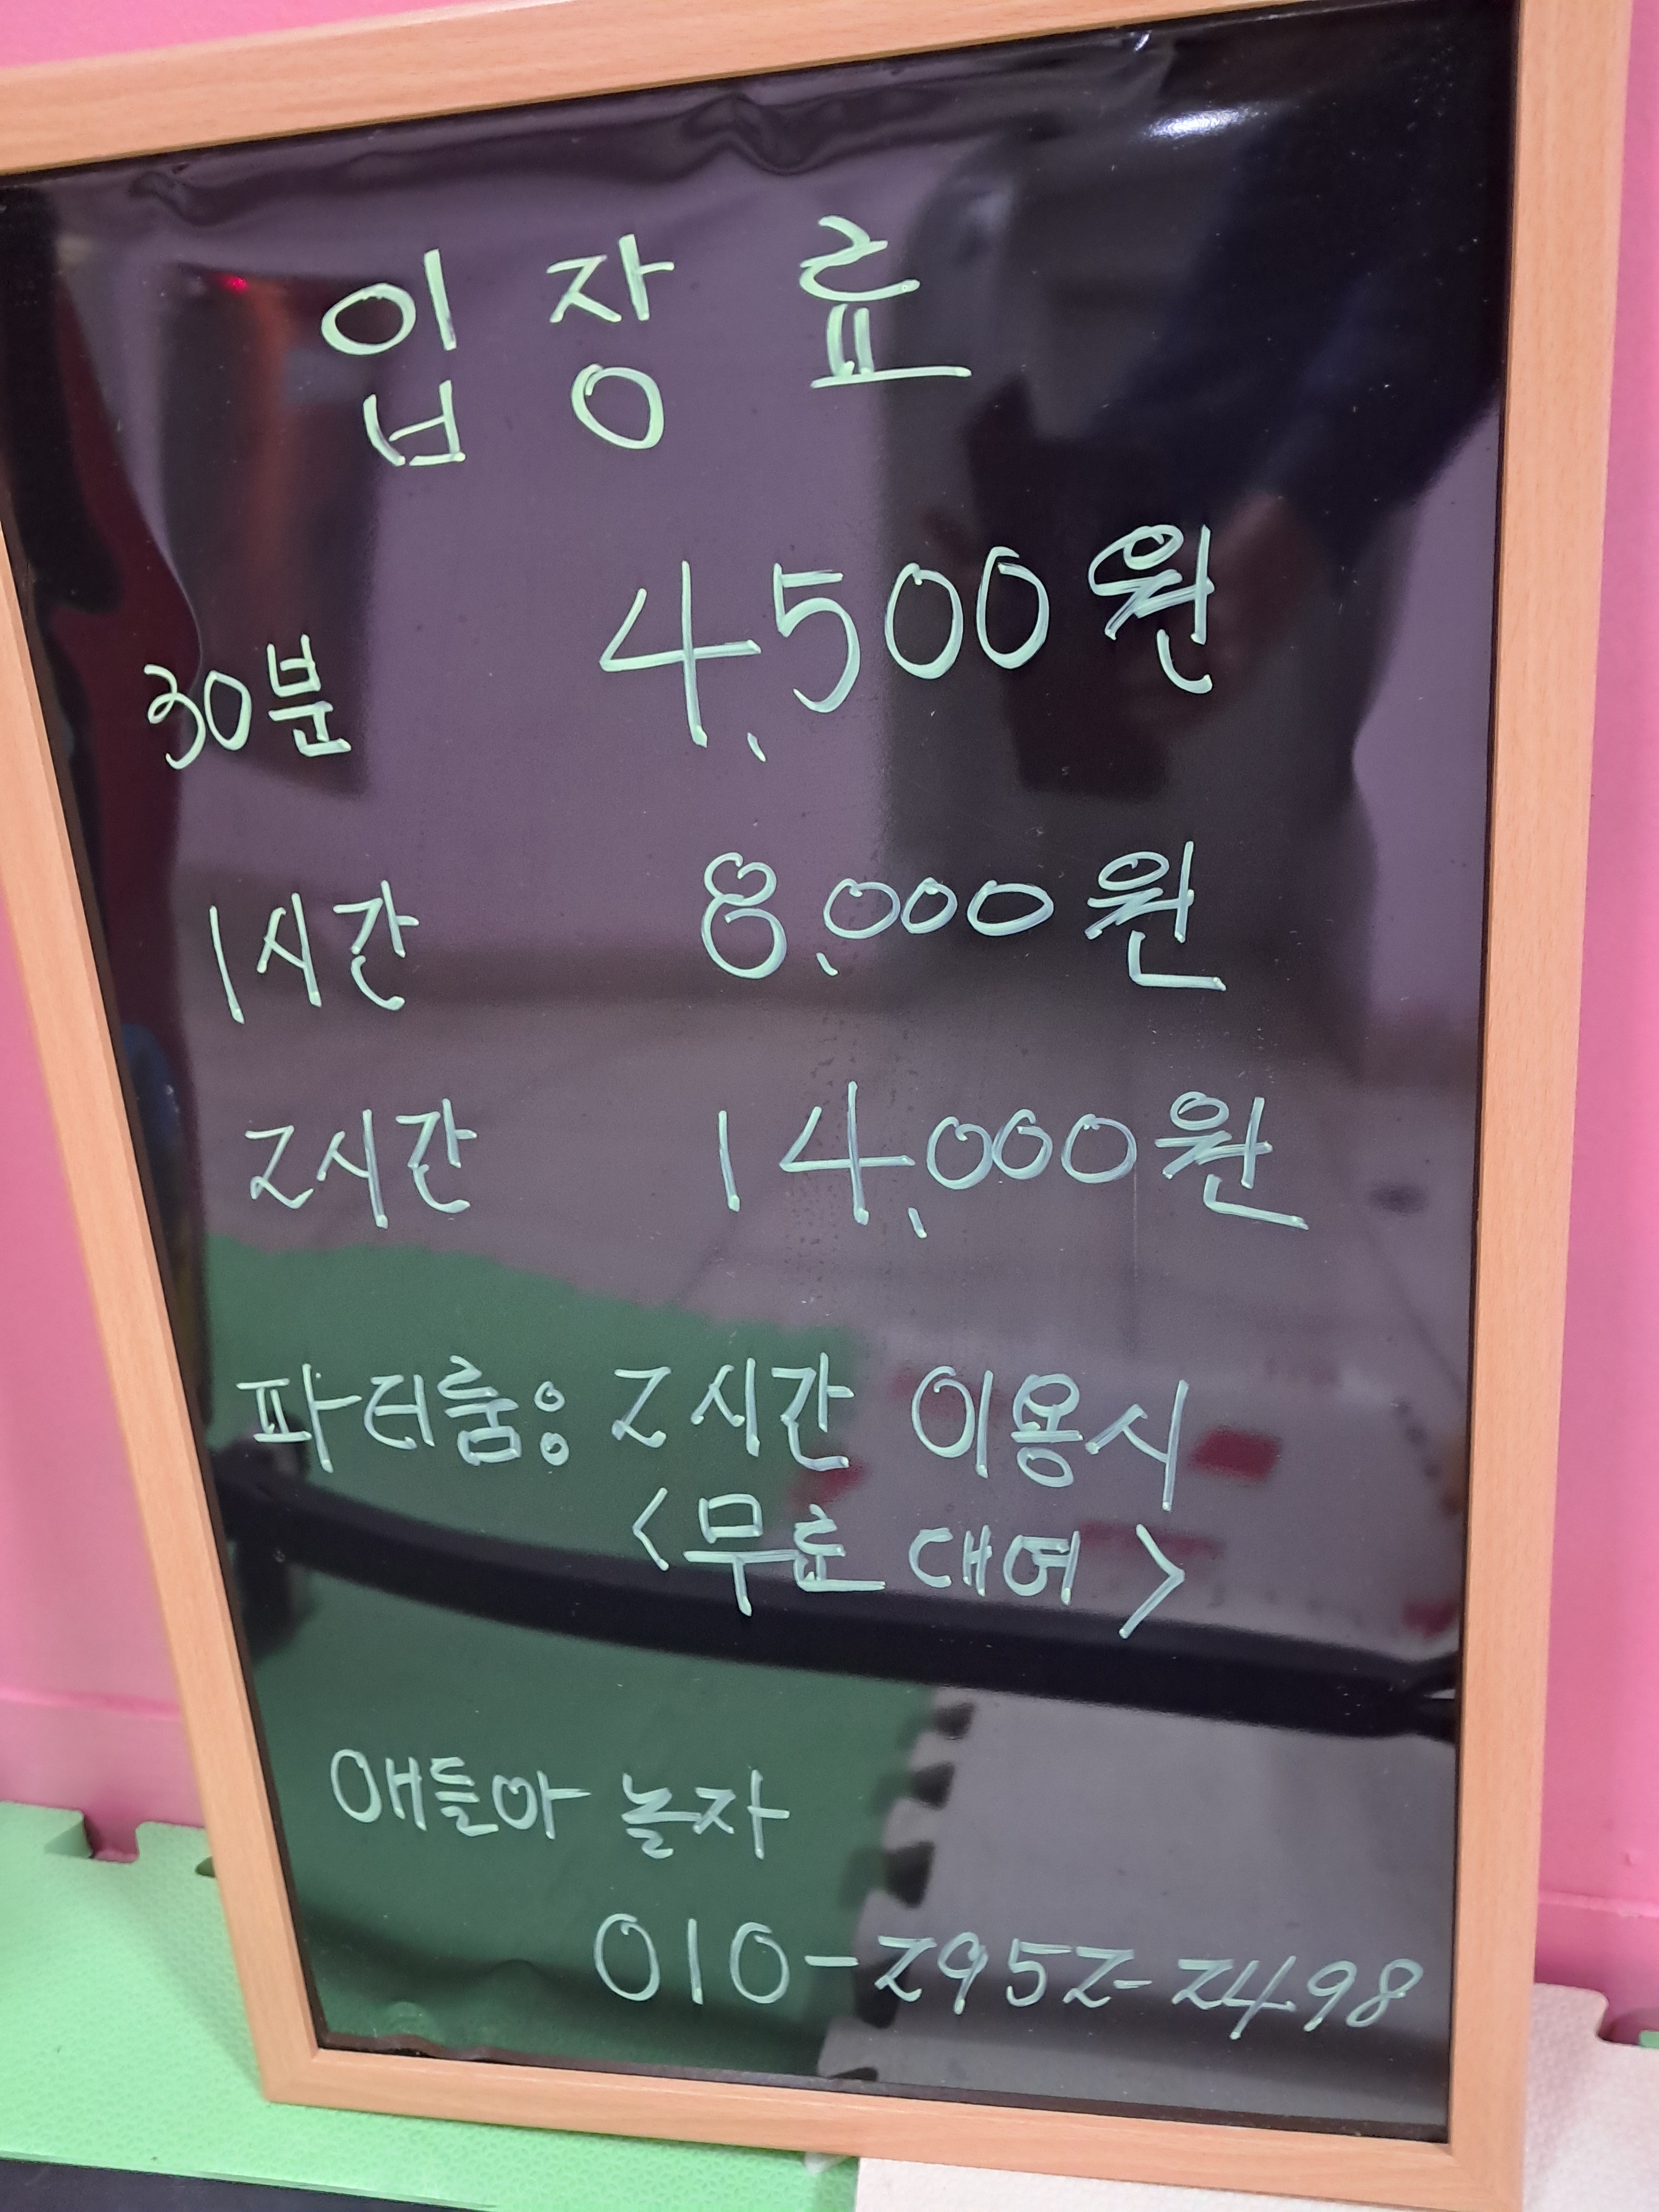 입장료
30분 4,500원
1시간 8,000원
2시간 14,000원
파티룸: 2시간 이용시
<무료 대여>
애들아 놀자
010-2952-2498